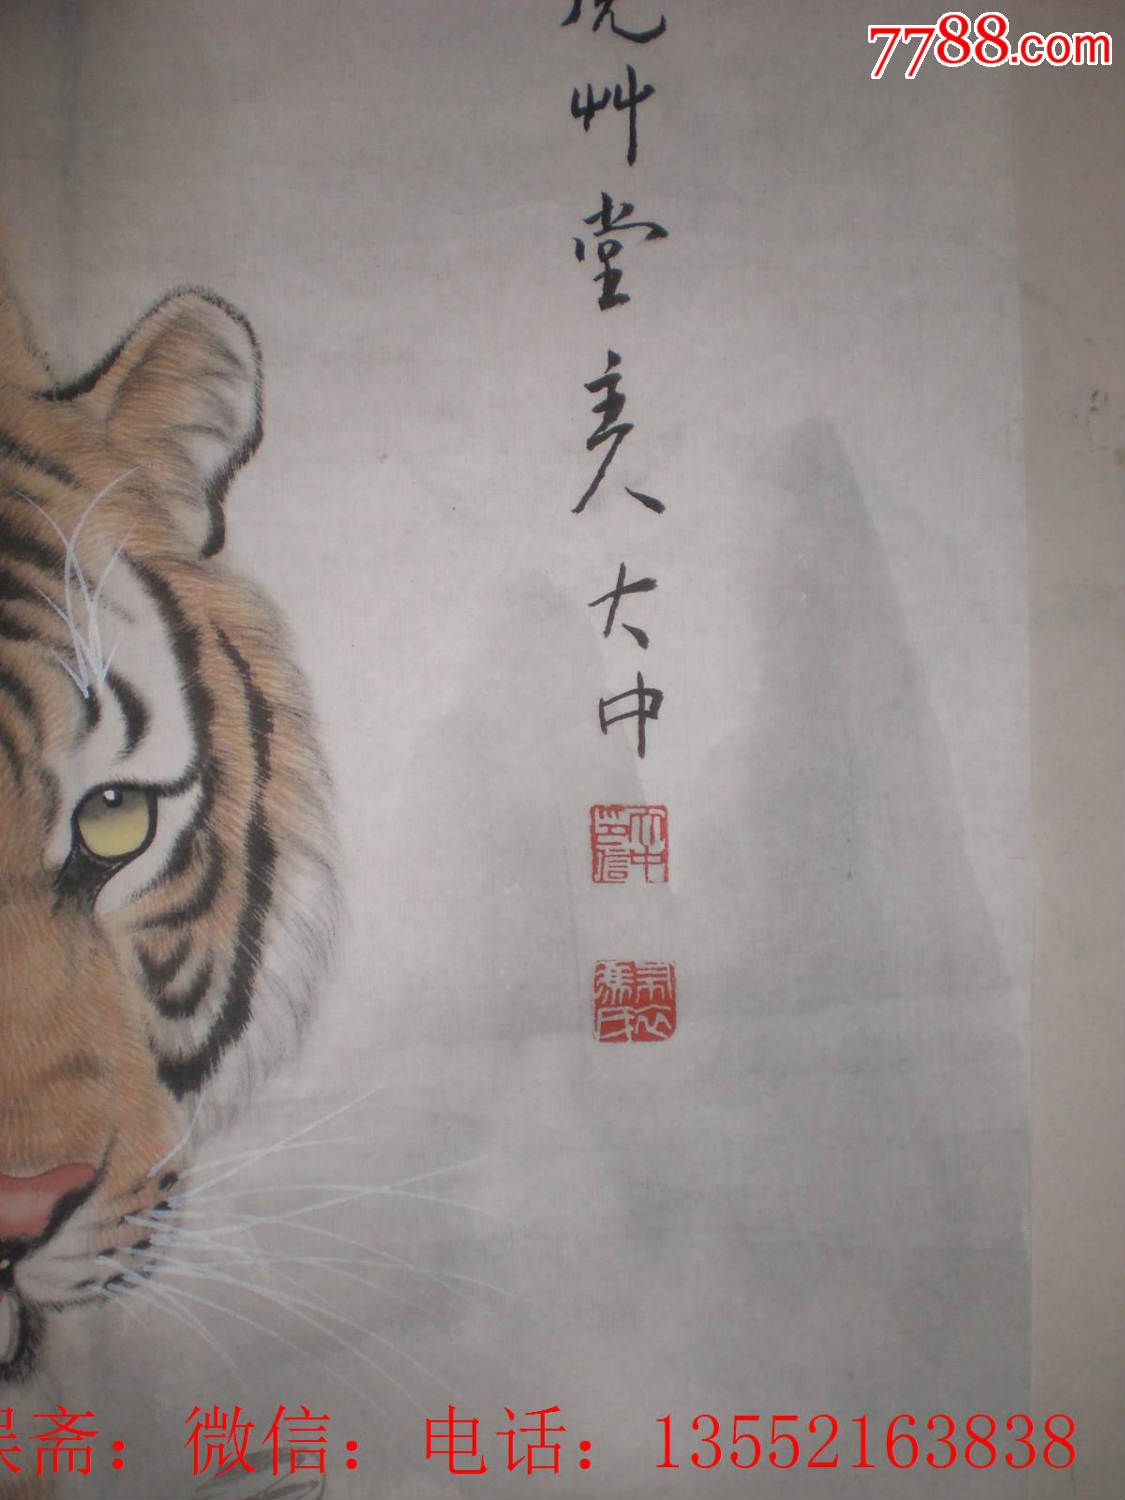 7788.com
艸堂主人大中
斋：微信：电话：13552163838